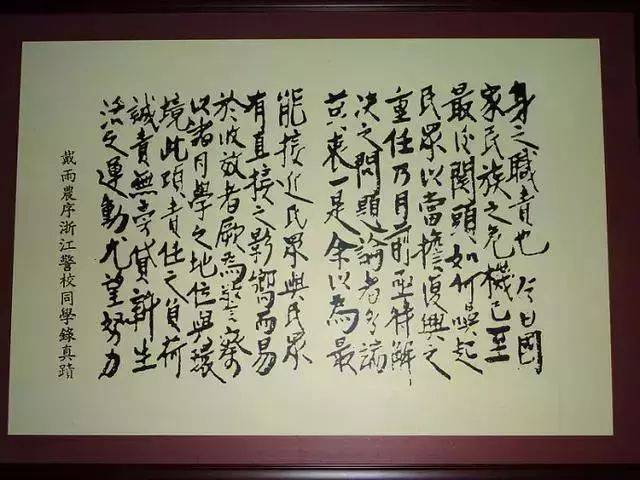 身之職責也今日國
家民族之危機已至
最後關頭如何喚起
民眾以當擔復興之
重任乃目前亟待解
決之問題論者多論
莫衷一是余以為最
能接近民眾與民眾
有直接之影響而易
於收效者厥為警察
以諸同學之地位與環
境此項責任之負荷
誠責無旁貸新生
活之運動尤望努力
戴雨農序浙江警校同學錄真蹟